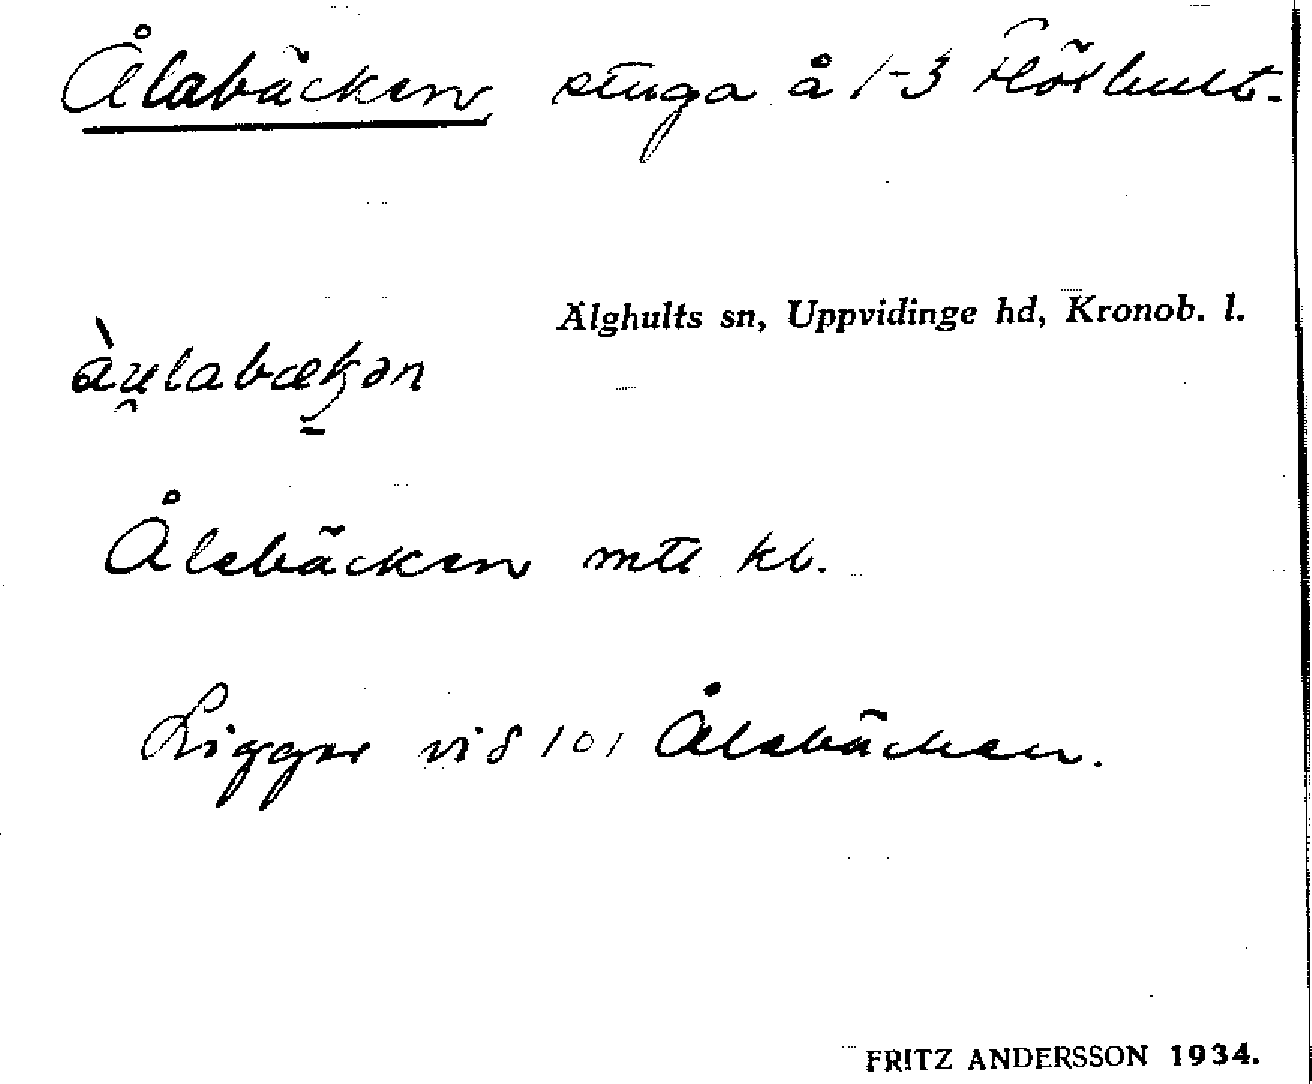 Ålabäcken stuga å 1-3 Flöxhult.
Älghults sn, Uppvidinge hd, Kronob. l.
àu̯labæʈʂən
Ålabäcken mtl kb.
Ligger vid 101 Ålabäcken.
FRITZ ANDERSSON 1934.